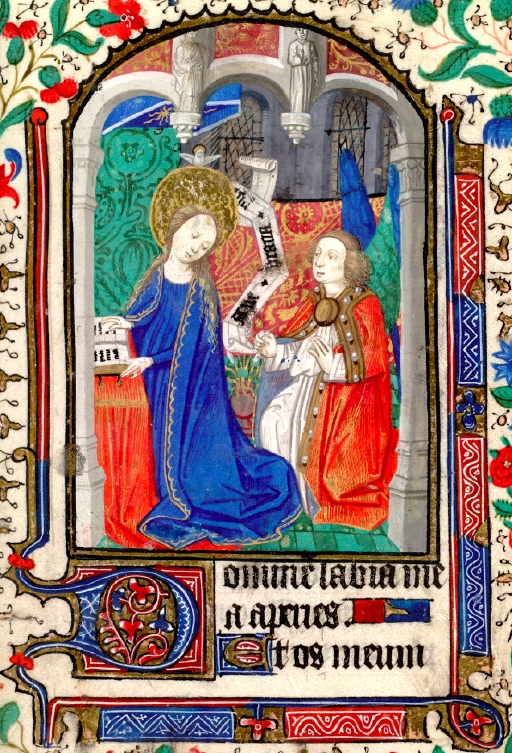 Domine labia me
a aperies.
Et os meum